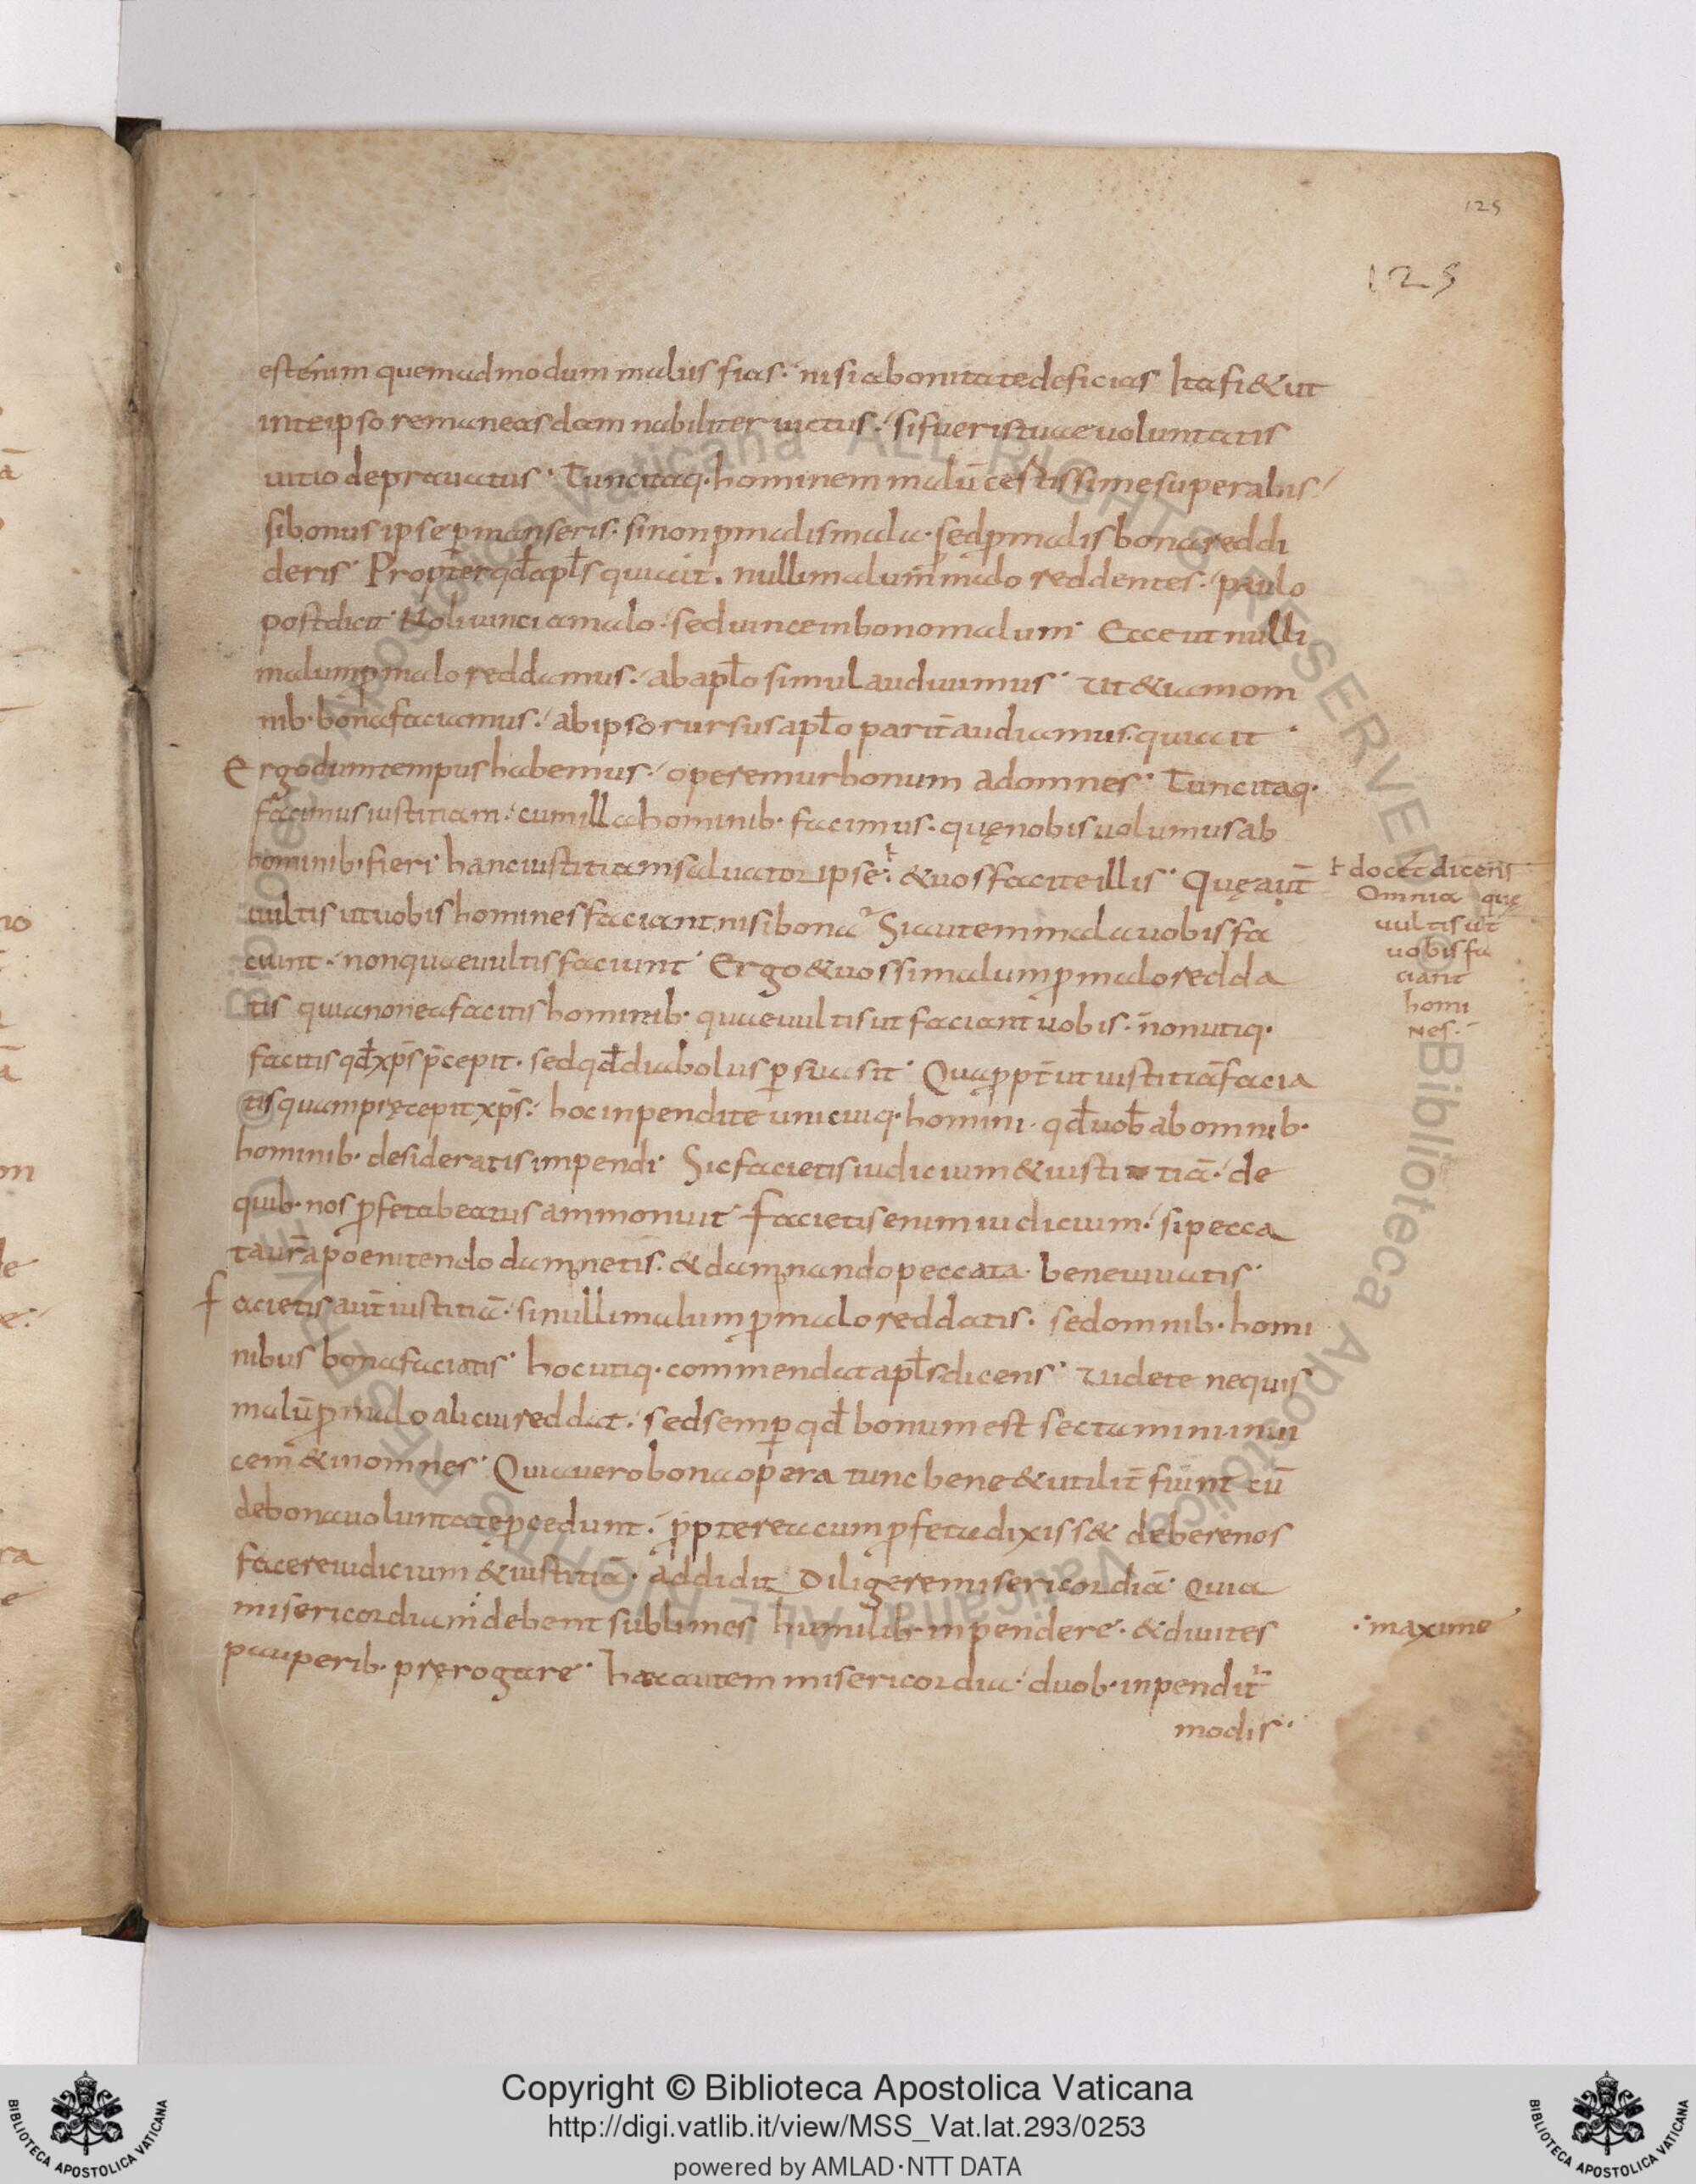 125
125
est enim quemadmodum malus fias. nisi a bonitate deficias Ita fi& ut
in te ipso remaneas damnabiliter uictus. si fueris tuae uoluntatis
uitio deprauatus. Tunc itaq· hominem malū certissime superabis
si bonus ipse p̱manseris. si non p malis mala. sed p malis bona reddi
deris. Propterqđ apl̄s qui ait. nulli malum p malo reddentes. paulo
post dicit. Noli uinci a malo. sed uince in bono malum. Ecce ut nulli
malum p malo reddamus. ab apl̄o simul audiuimus. Ut &iam om
nib· bona faciamus. ab ipso rursus apl̄o parit̄ audiamus. qui ait
Ergo dum tempus habemus. operemur bonum ad omnes. Tunc itaq·
facimus iustitiam. cum illa hominib· facimus. quę nobis uolumus ab
hominib· fieri. hanc iustitiam saluator ipse ƚ & uos facite illis. Quę aut̄
uultis ut uobis homines faciant nisi bona? Si autem mala uobis fa
ciunt. non quae uultis faciunt. Ergo & uos si malum p malo redda
tis quia non ea facitis hominib· quae uultis ut faciant uobis. non utiq·
facitis qđ xp̄s p̄cepit. sed qđ diabolus p̱suasit. Quapropt̄ ut iustitiā facia
tis quam pręcepit xp̄s. hoc inpendite unicuiq· homini. qđ uob̄ ab omnib·
hominib· desideratis impendi. Sic facietis iudicium & iustitiā. de
quib· nos pfeta beatus ammonuit. Facietis enim iudicium. si pecca
ta ur̄a poenitendo damnetis. & damnando peccata. bene uiuatis.
Facietis aut̄ iustitiā. si nulli malum p malo reddatis. sed omnib· homi
nibus bona faciatis. hoc utiq· commendat apl̄s dicens. Uidete nequis
malū p malo alicui reddat. sed semp̱ qđ bonum est sectamini inui
cem & in omnes. Quia uero bona opera tunc bene & utilit̄ fiunt cū
de bona uoluntate pcedunt. ppterea cum pfeta dixiss& debere nos
facere iudicium & iustitiā. addidit Diligere misericordiā. Quia
misericordiam debent sublimes humilib· inpendere. & diuites
pauperib· pręrogare. haec autem misericordia. duob· inpendit̄
modis.
ƚ docet dicens
Omnia quę
uultis ut
uobis fa
ciant
homi
nes.
maxime
Copyright © Biblioteca Apostolica Vaticana
http://digi.vatlib.it/view/MSS_Vat.lat.293/0253
powered by AMLAD·NTT DATA
BIBLIOTECA APOSTOLICA VATICANA
BIBLIOTECA APOSTOLICA VATICANA